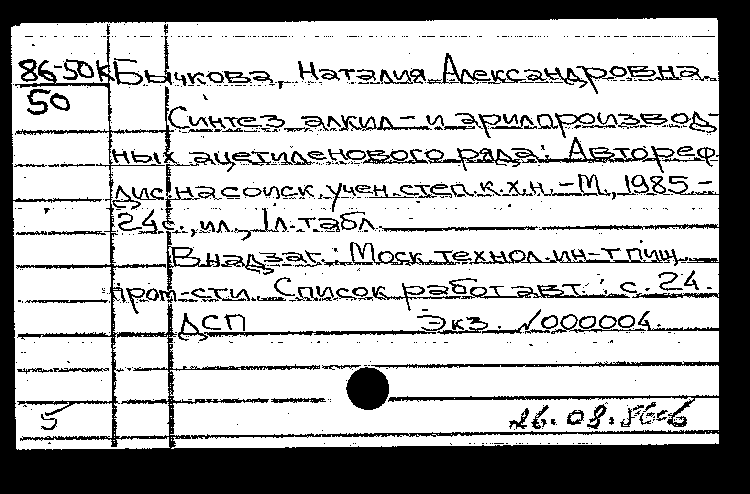 86-50к Бычкова, Наталия Александровна.
50
Синтез алкил- и арилпроизвод-
ных ацетиленового ряда: Автореф
дис. на соиск. учен. степ. к.х.н. - М., 1985 -
24с., ил., 1л. табл.
В надзаг.: Моск. технол. ин-т пищ.
пром-сти. Список работ авт.: с. 24.
ДСП Экз. №000004.
5
26.08.86